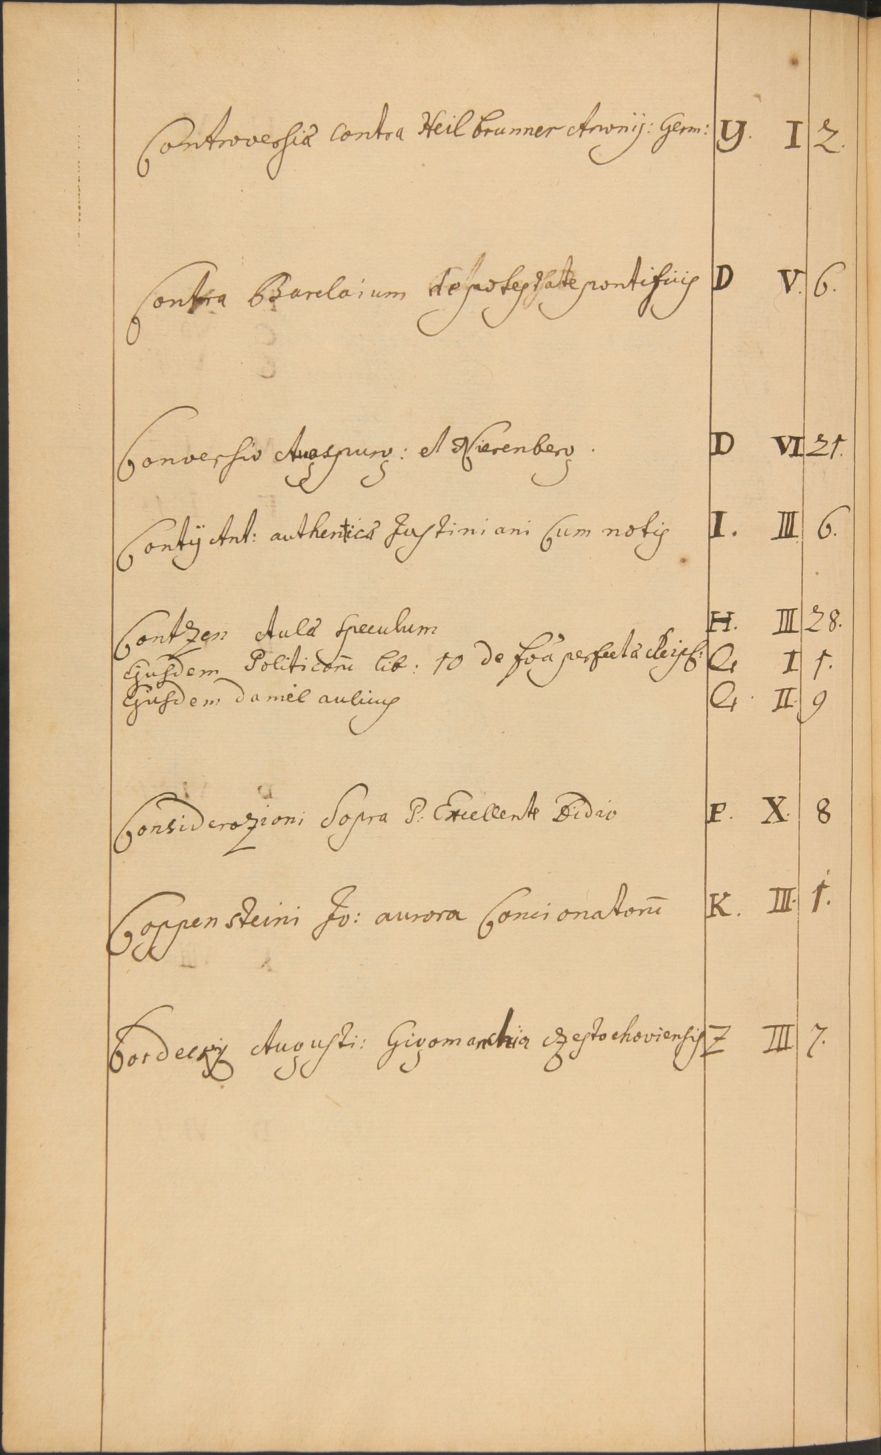 Controversiâ contra Heilbrunner Anonij: Germ: Y. I 2.
Contra Barclaium de potestate pontificis D V. 6.
Conversio Augspurg: et Nierenberg. D VI 21.
Contij Ant: authenticâ Justiniani Cum notis I. III 6.
Contzen Aulâ Speculum H. III 28.
Ejusdem Politicorũ lib: 10 de I 1.
Ejusdem daniel aulicus II 9
Considerazioni Sopra P: Excellente Didio F. X. 8
Coppensteini Jo: aurora Concionatorũ K. III. 1.
Augusti: Gigomachia częstochoviensis Z III 7.